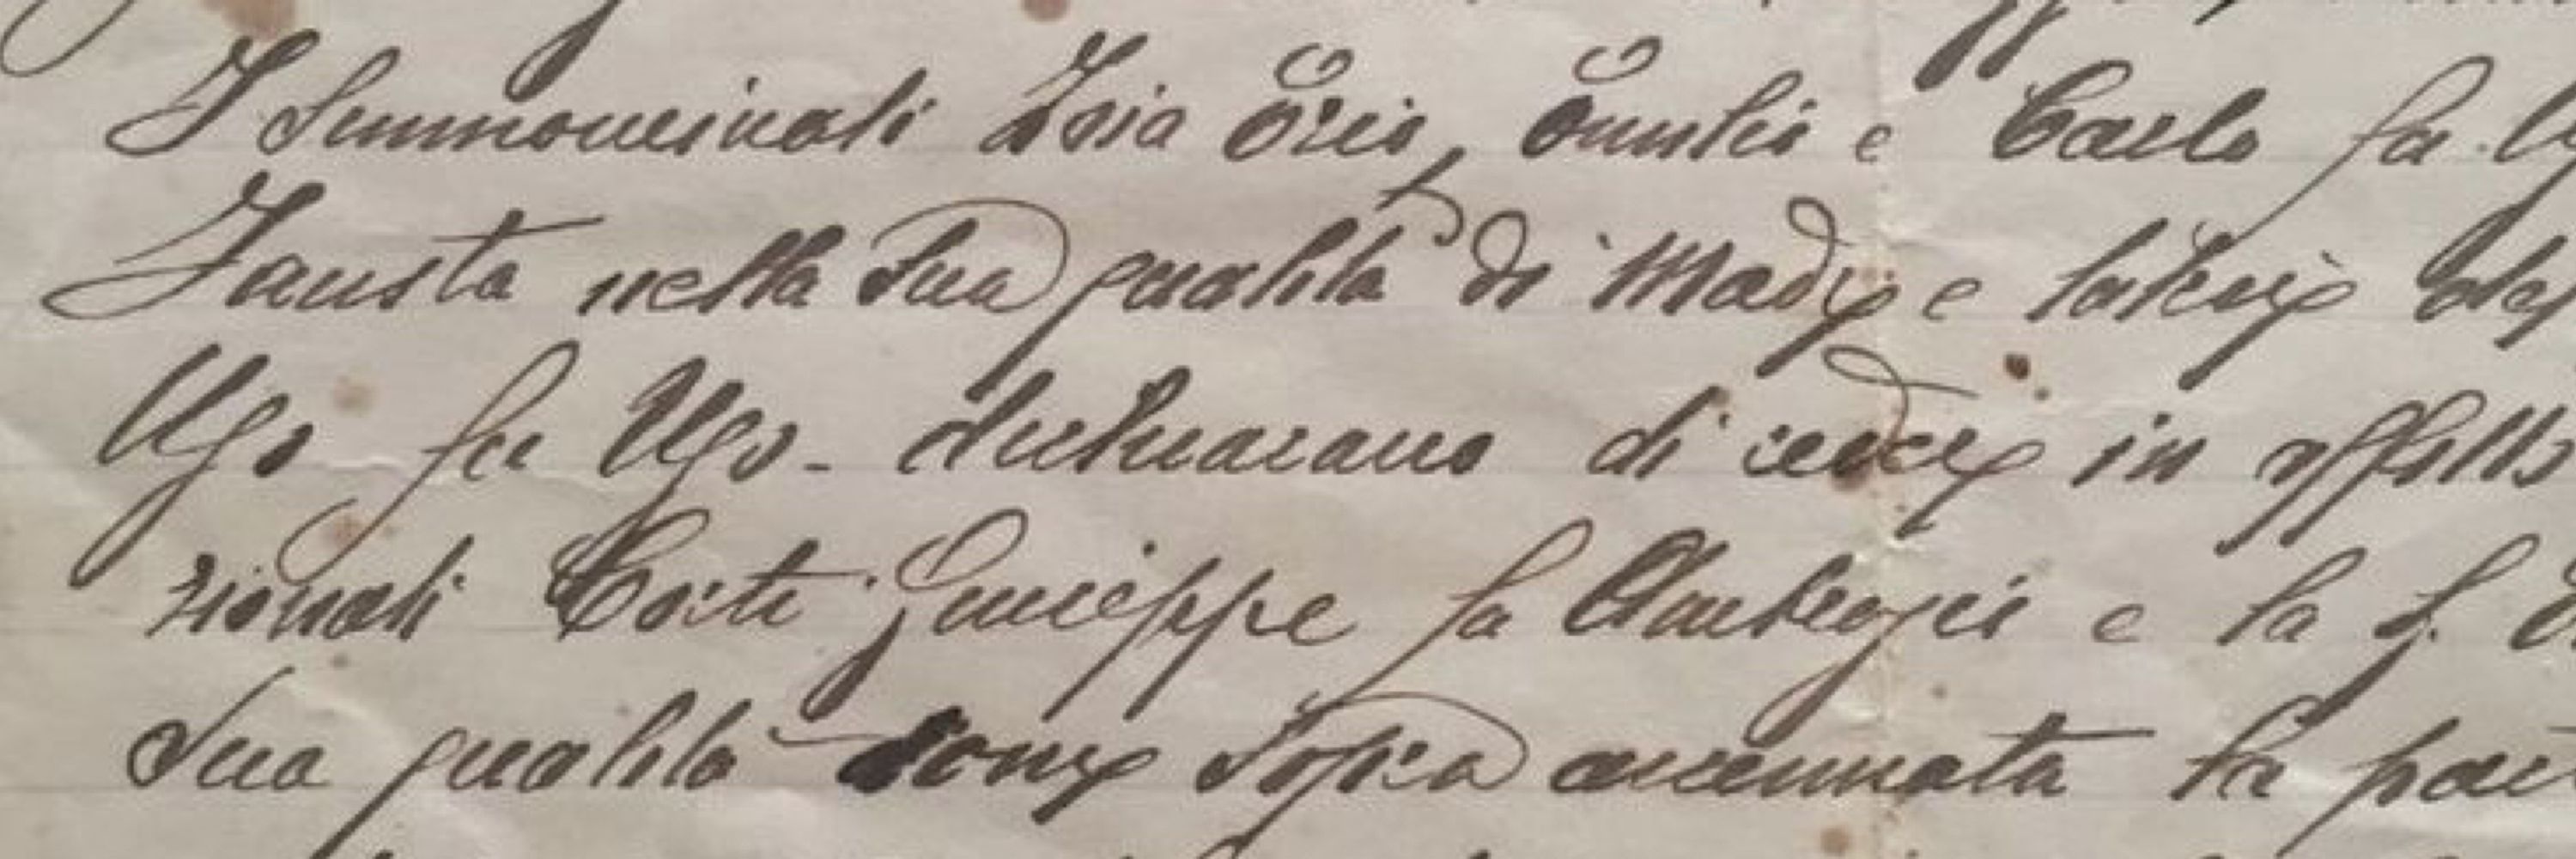 I summominati Isia Ezio, Emilio e Carlo fu
Fausta nella Sua qualità di Madre e tutrice
Ugo fu Ugo - dichiarano di cedere in affitto
zionali Corti Giuseppe fu Ambrogio e la S.
Sua qualità come Sopra accennata